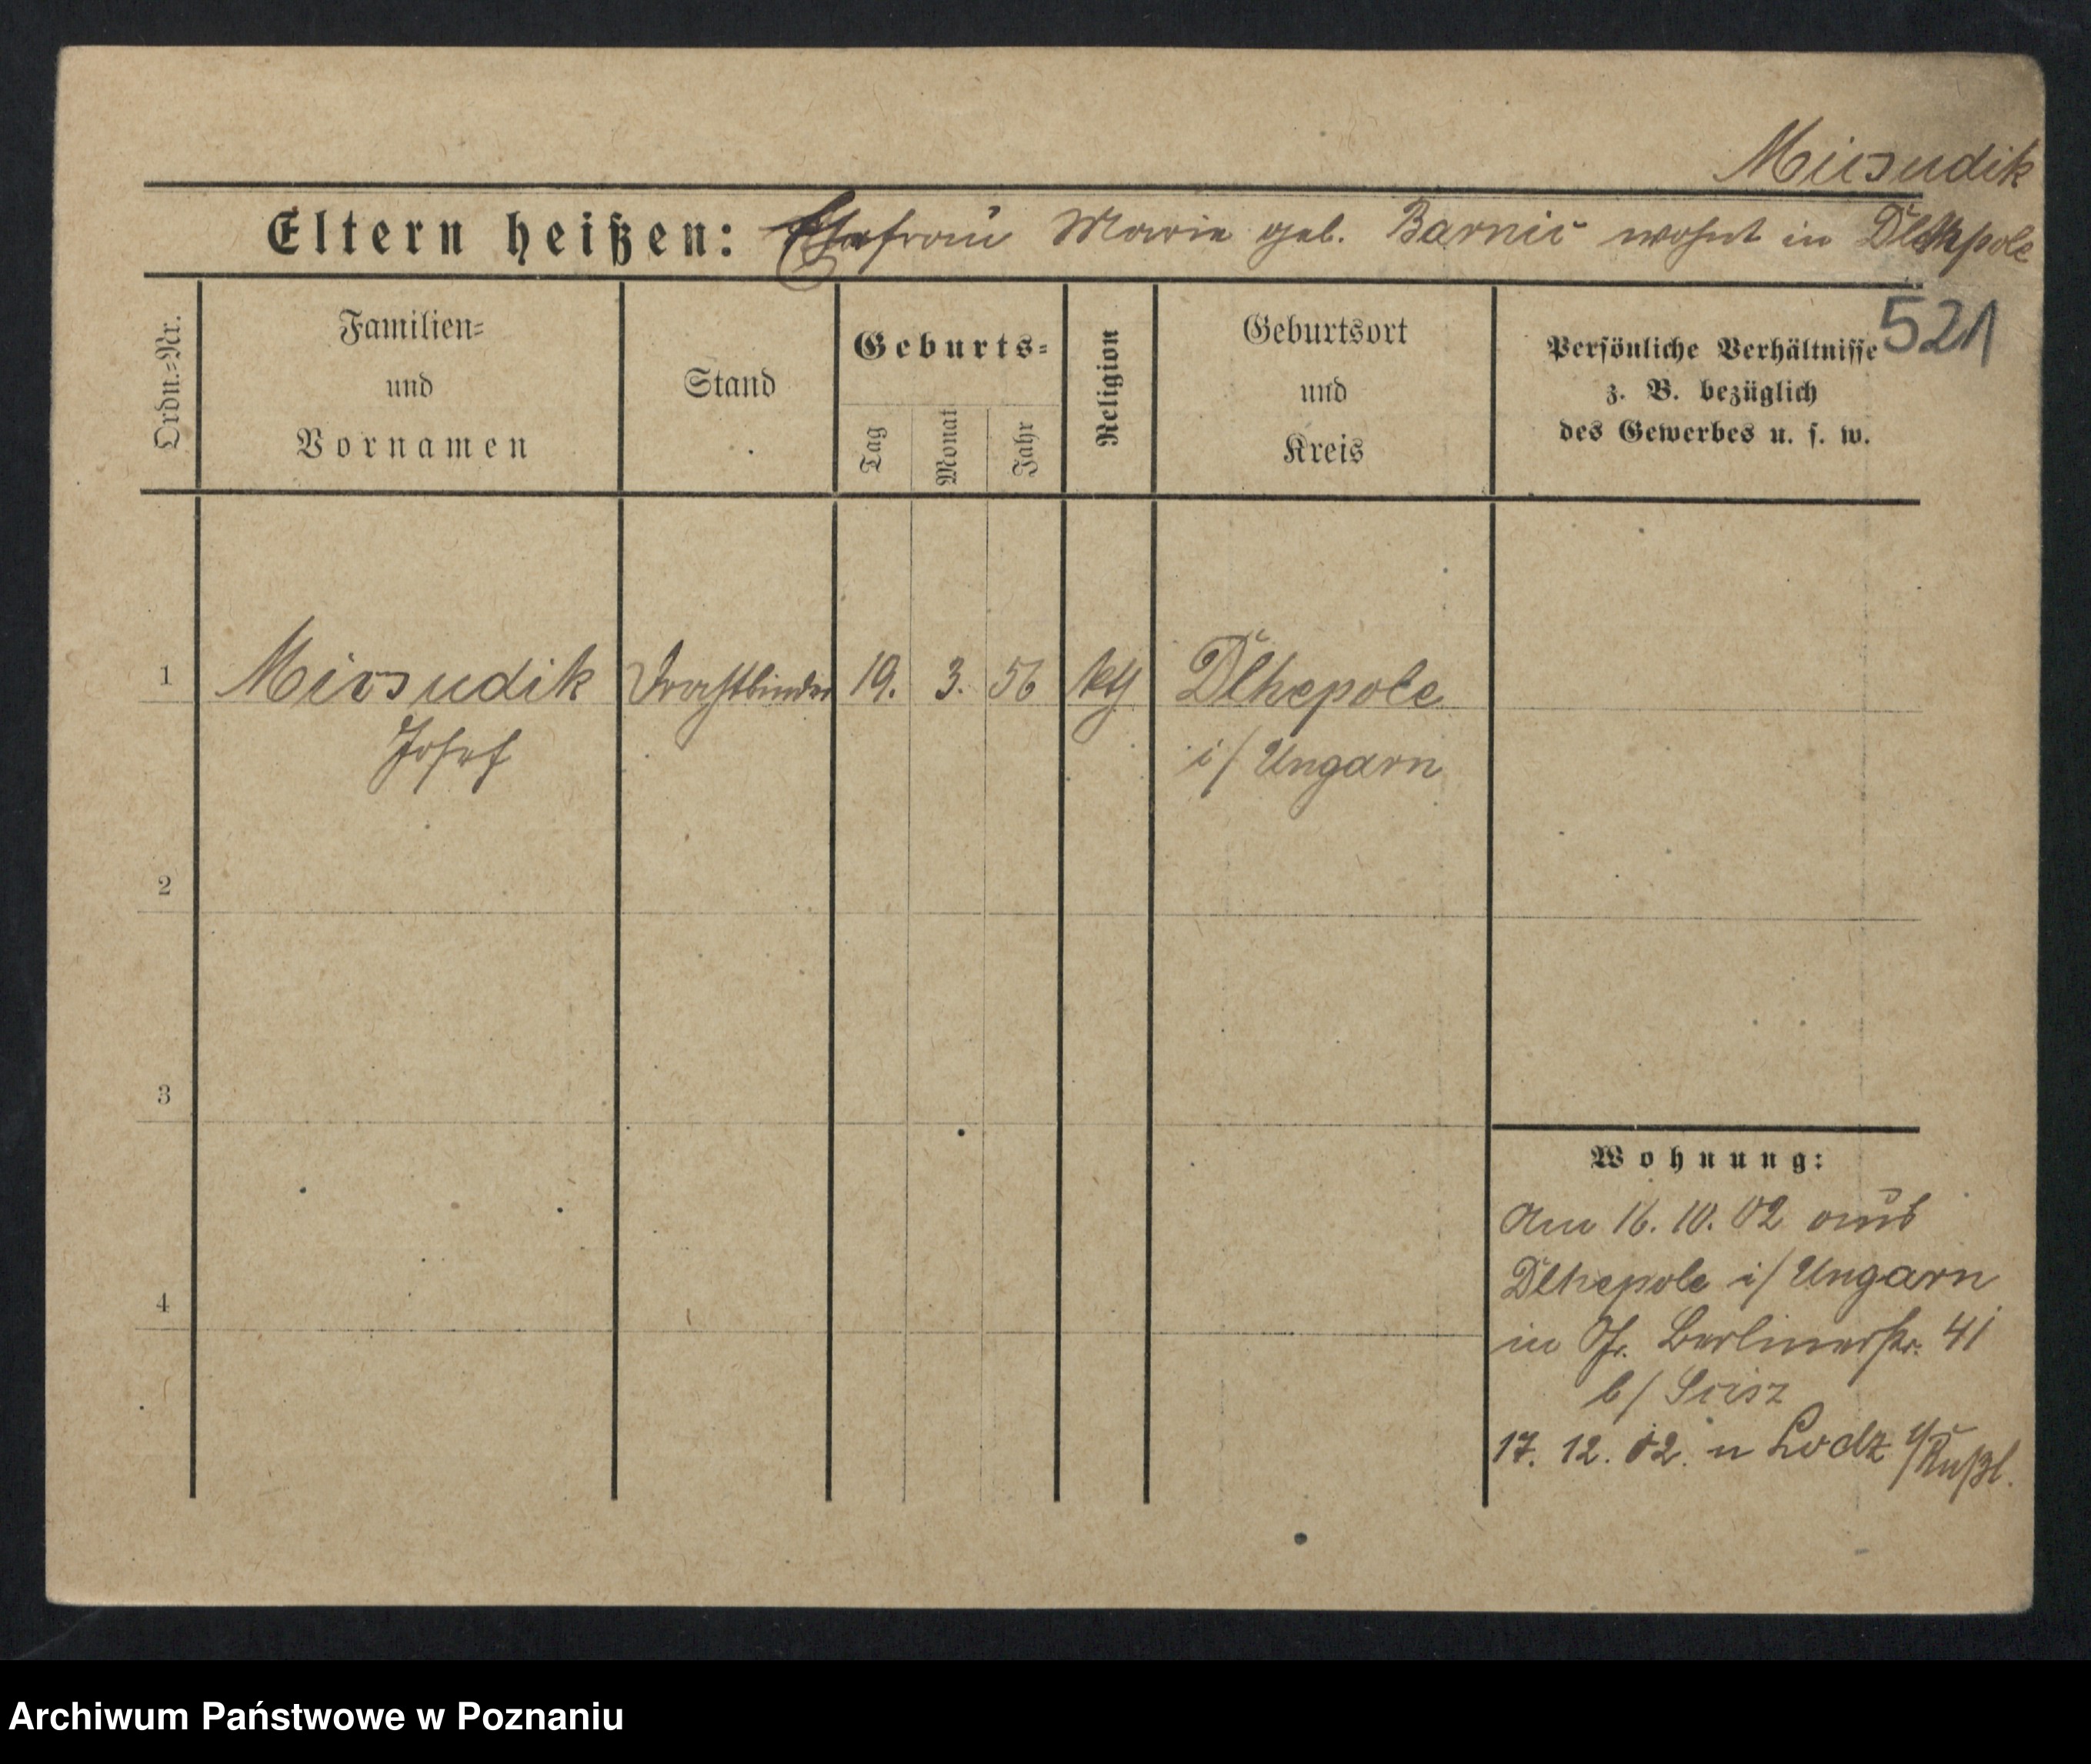 Micsudik
Eltern heißen: Ehefrau Marie geb. Barnic wohnt in Dlhepole
521
Ordn.-Nr.
Familien-
und
Vornamen
Stand
Geburts-
Tag
Monat
Jahr
Religion
Geburtsort
und
Kreis
Persönliche Verhältnisse
z. B. bezüglich
des Gewerbes u. s. w.
1 Micsudik Drahtbinder 19. 3. 56 kth Dlhepole
Josef i/ Ungarn
2
3
4
Wohnung:
Am 16. 10. 02 aus
Dlhepole i/ Ungarn
in Berlinerstr. 41
b/
17. 12. 02. n Lodz i/Rußl.
Archiwum Państwowe w Poznaniu